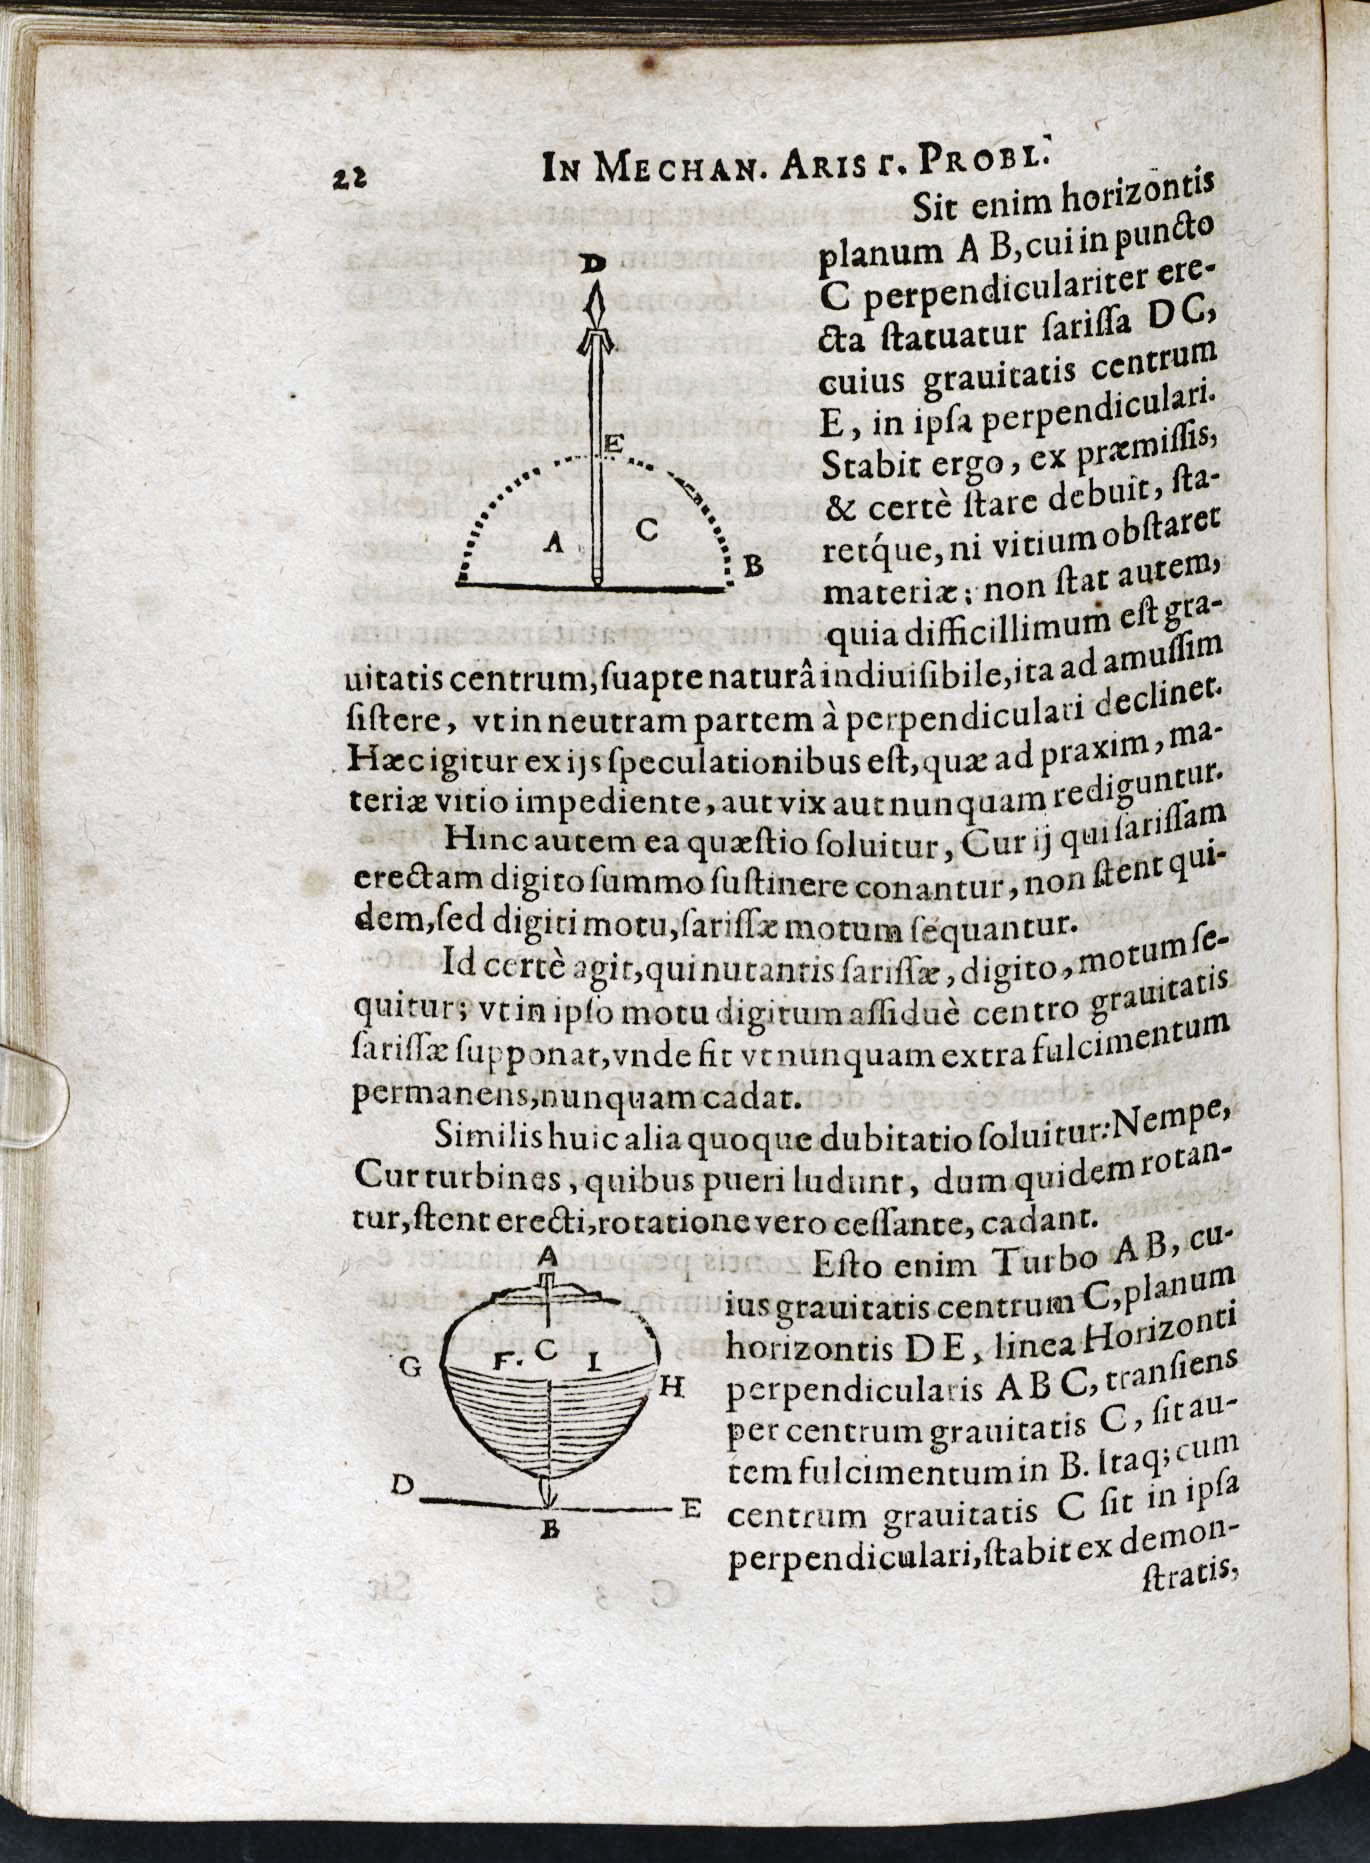 22
IN MECHAN. ARIST. PROBL.
Sit enim horizontis
planum A B, cui in puncto
C perpendiculariter ere-
cta ſtatuatur ſariſſa D C,
cuius grauitatis centrum
E, in ipſa perpendiculari.
Stabit ergo, ex præmiſſis,
& certè ſtare debuit, ſta-
retq́ue, ni vitium obſtaret
materiæ; non ſtat autem,
quia difficillimum eſt gra-
D
E
A
C
B
uitatis centrum, ſuapte naturâ indiuiſibile, ita ad amuſſim
ſiſtere, vt in neutram partem à perpendiculari declinet.
Hæc igitur ex ijs ſpeculationibus eſt, quæ ad praxim, ma-
teriæ vitio impediente, aut vix aut nunquam rediguntur.
Hinc autem ea quæſtio ſoluitur, Cur ij qui ſariſſam
erectam digito ſummo ſuſtinere conantur, non ſtent qui-
dem, ſed digiti motu, ſariſſæ motum ſequantur.
Id certè agit, qui nutantis ſariſſæ, digito, motum ſe-
quitur; vt in ipſo motu digitum aſſiduè centro grauitatis
ſariſſæ ſupponat, vnde fit vt nunquam extra fulcimentum
permanens, nunquam cadat.
Similis huic alia quoque dubitatio ſoluitur: Nempe,
Cur turbines, quibus pueri ludunt, dum quidem rotan-
tur, ſtent erecti, rotatione vero ceſſante, cadant.
A
G
F. C I
H
D
E
B
Eſto enim Turbo A B, cu-
ius grauitatis centrum C, planum
horizontis D E, linea Horizonti
perpendicularis A B C, tranſiens
per centrum grauitatis C, ſit au-
tem fulcimentum in B. Itaq; cum
centrum grauitatis C ſit in ipſa
perpendiculari, ſtabit ex demon-
ſtratis,